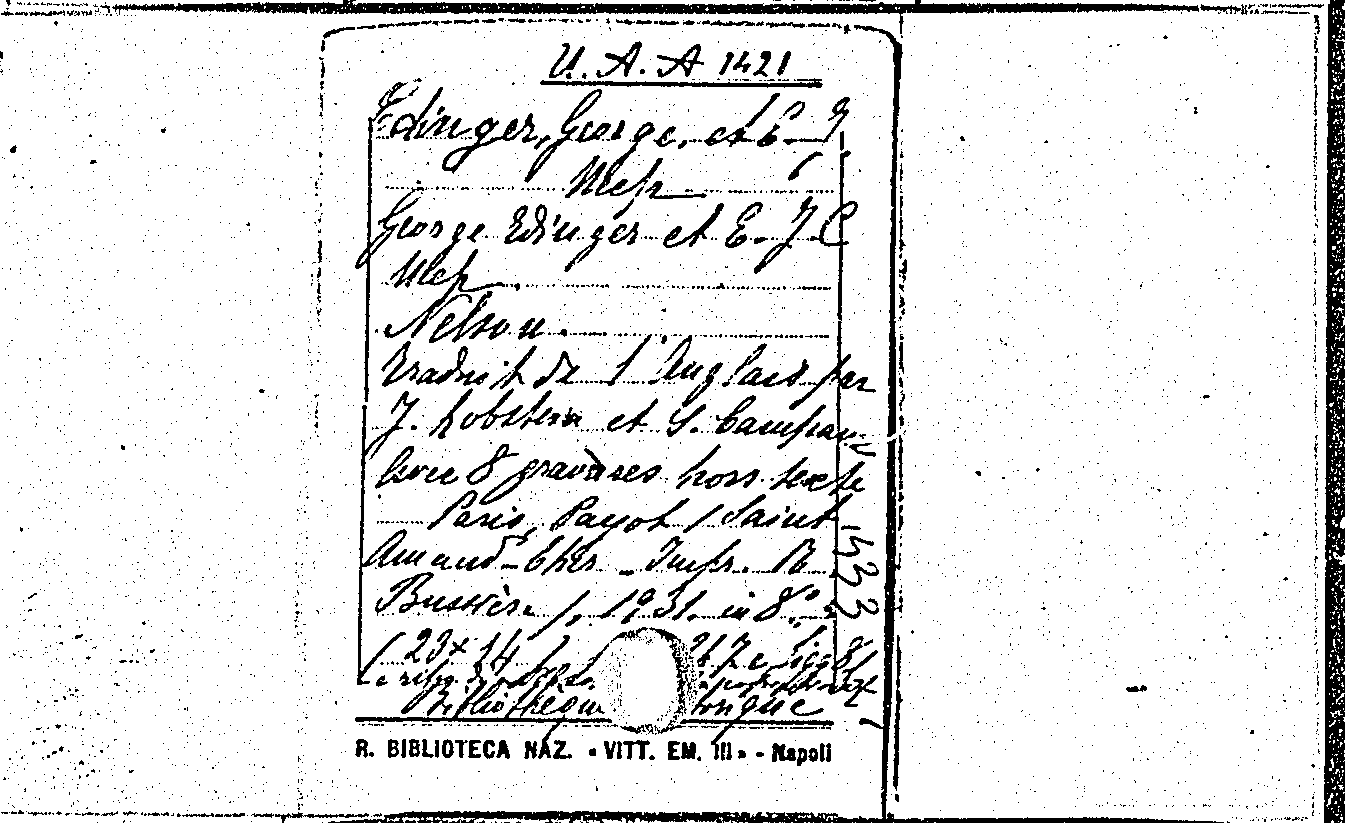 U. A. A 1421
Edinger, George, et E. J.
C. Neep
George Edinger et E. J. C
Neep.
Nelson.
traduit de l'Anglais par
J. Lobstein et S. Campaux
Avec 8 gravures hors texte
Paris, Payot / Saint
Amand-Cher - Impr. R.
Bussière /, 1931. in 8°.
(23x14 217 e
Bibliothèque
R. BIBLIOTECA NAZ. « VITT. EM. III » - Napoli